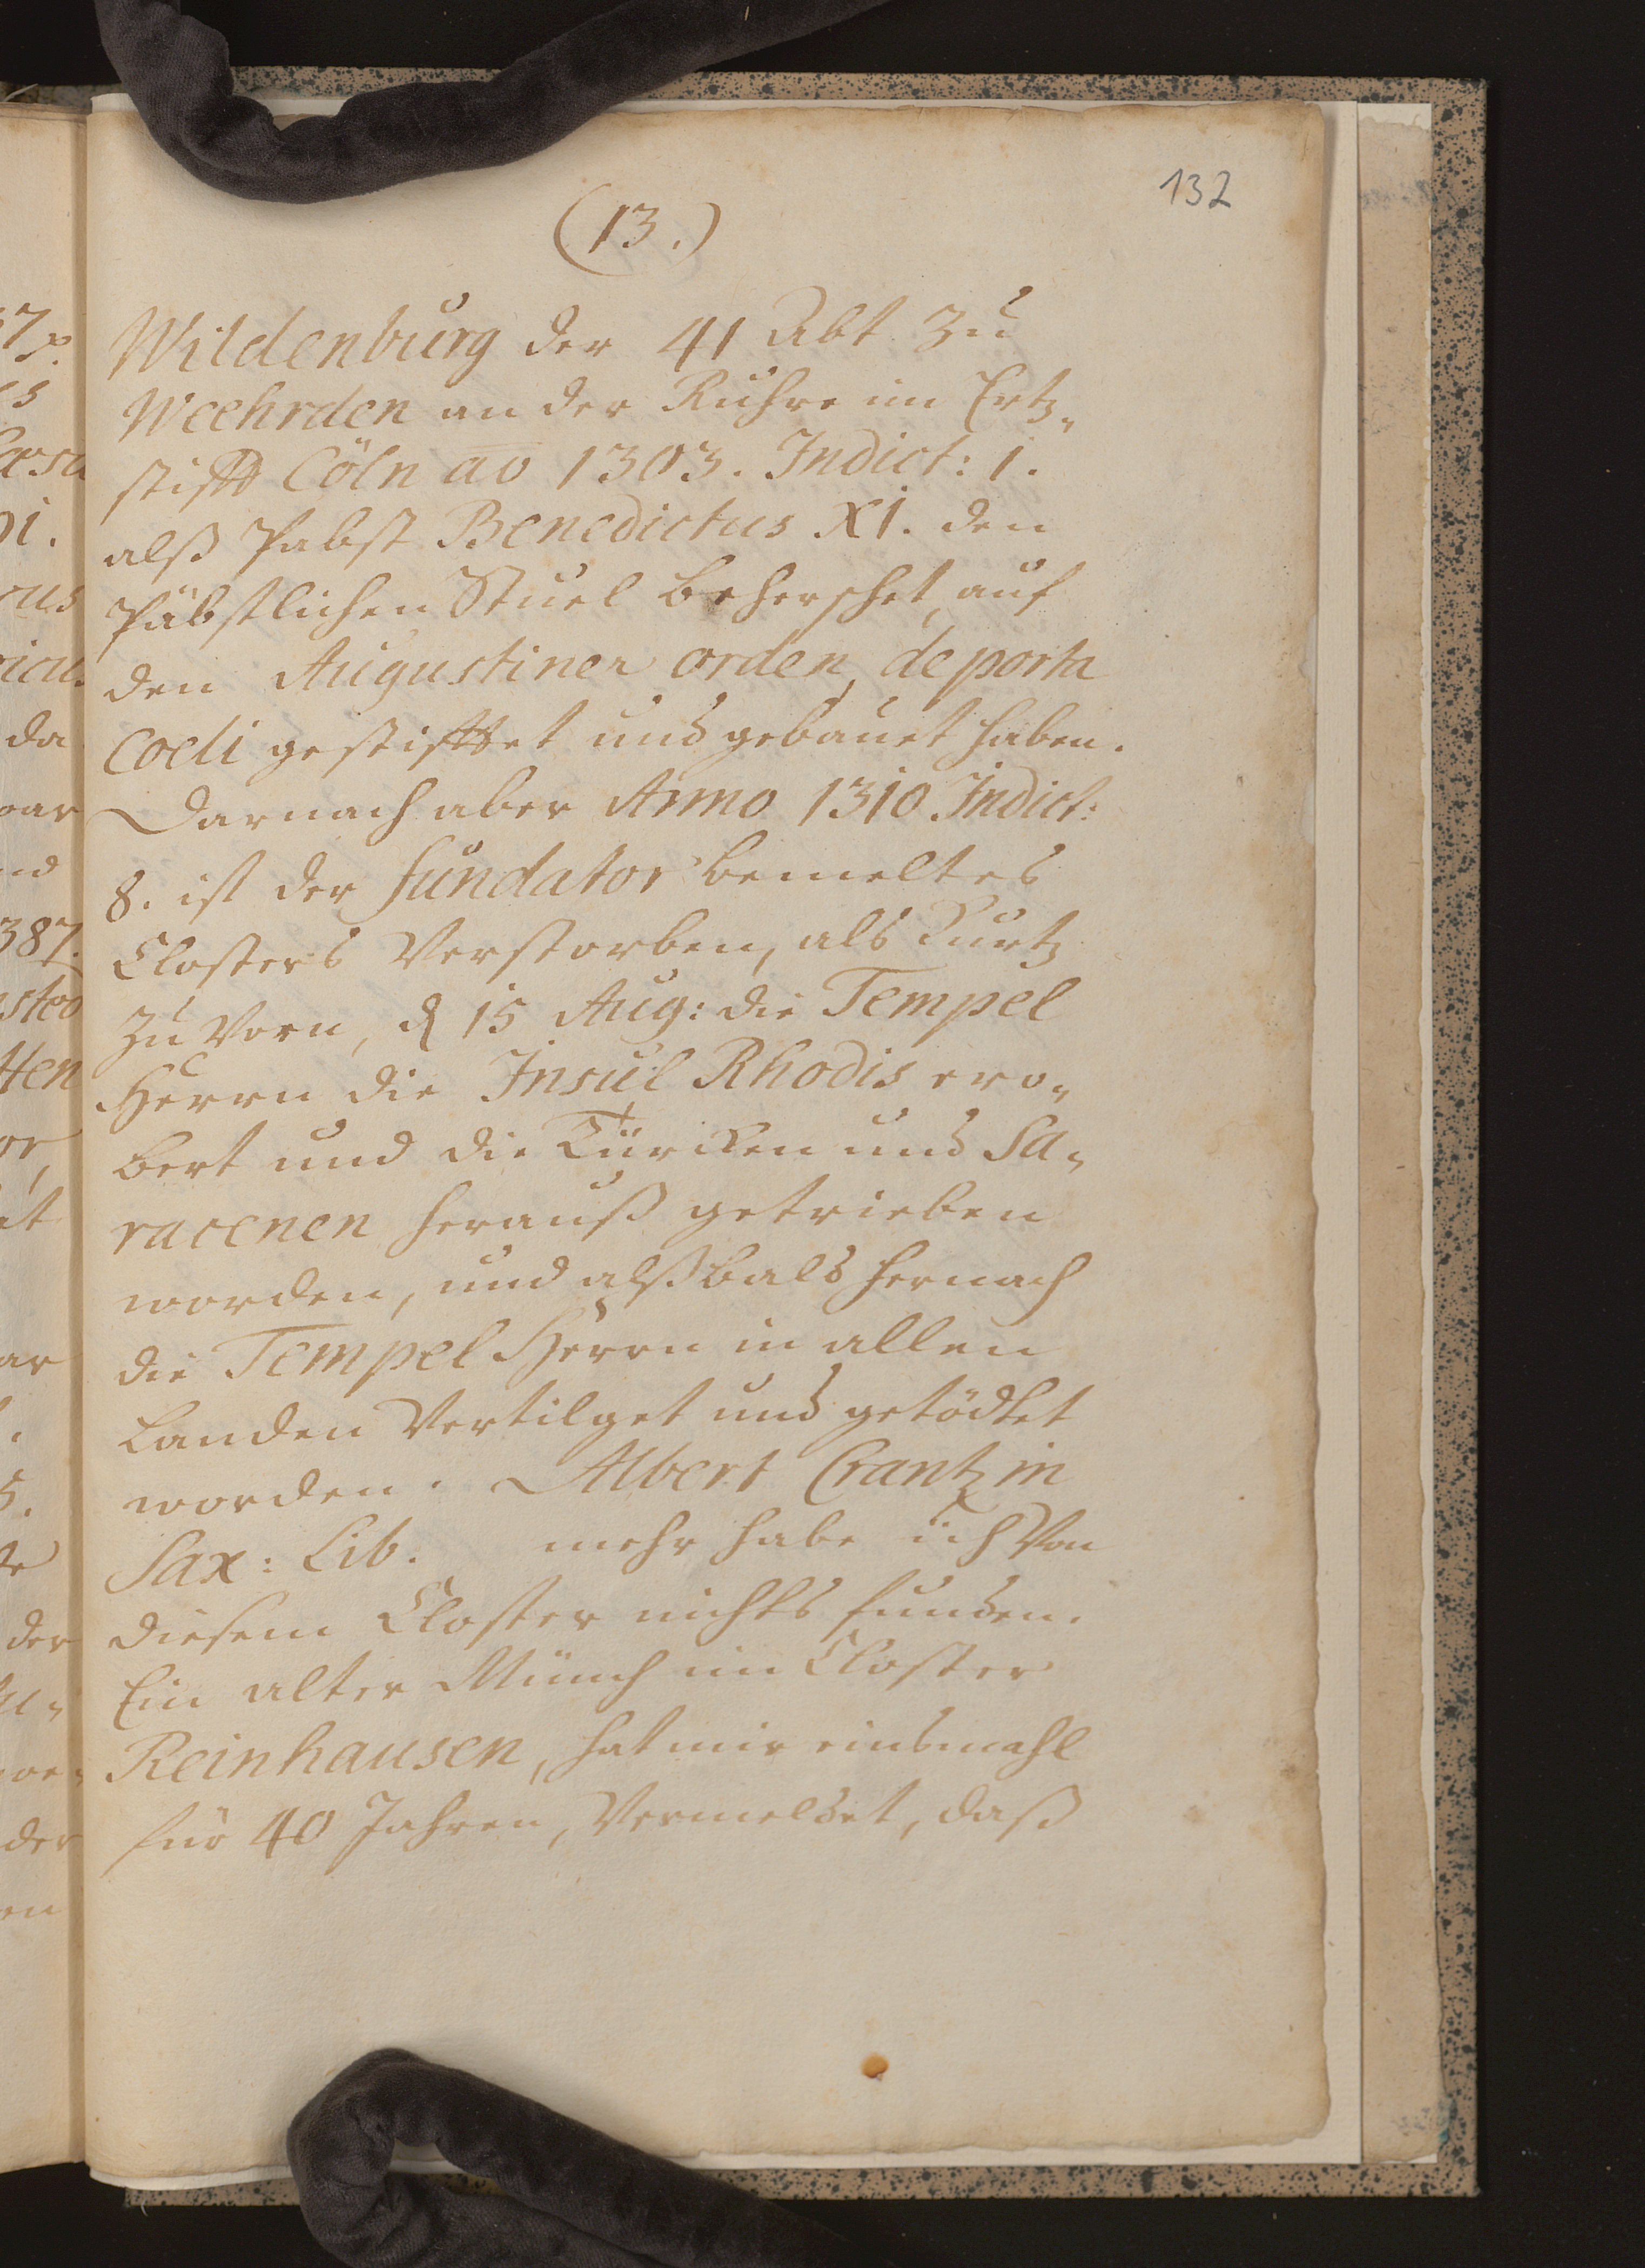 132
(13.)
Wildenburg der 41 Abt zu
Weehrden an der Ruhre im Ertz-
stifft Cöln ao 1303. Indict: 1.
alß Pabst Benedictus XI. den
Päbstlichen Stuel beherschet, auf
den Augustiner orden, de porta
Coeli gestifftet und gebauet haben.
Darnach aber Anno 1310. Indict:
8. ist der fundator bemeltes
Closters Verstorben, als Kurtz
zu Vorn, d 15 Aug: die Tempel
Herrn die Insul Rhodis ero-
bert und die Türcken und Sa-
racenen herauß getrieben
worden, und alßbald hernach
die Tempel Herrn in allen
Landen Vertilget und getödtet
worden. Albert Crantz in
Sax: Lib. mehr habe ich Von
diesem Closter nichts funden.
Ein alter Münch im Closter
Reinhausen, hat mir einsmahl
für 40 Jahren, Vermeldet, daß